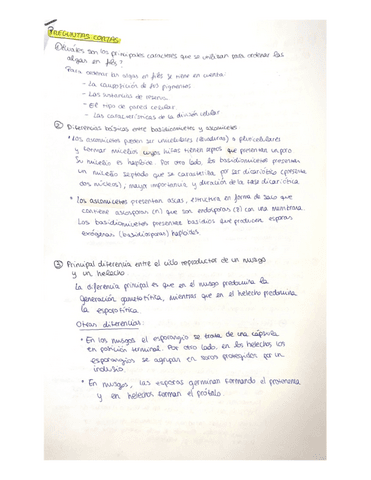 PREGUNTAS CORTAS
① ¿Cuáles son los principales caracteres que se utilizan para ordenar las
algas en fils?
Para ordenar las algas en fils se tiene en cuenta:
- La composición de los pigmentos
- Las sustancias de reserva
- El tipo de pared celular
- Las características de la división celular
② Diferencias básicas entre basidiomicetes y ascomicetes
• Los ascomicetes pueden ser unicelulares (levaduras) o pluricelulares
y formar micelios cuyas hifas tienen septos que presentan un poro.
Su micelio es haploide. Por otro lado, los basidiomicetes presentan
un micelio septado que se caracteriza por ser dicariótico (presenta
dos núcleos), mayor importancia y duración de la fase dicariótica
• Los ascomicetes presentan ascas, estructura en forma de saco que
contiene ascosporas (n) que son endosporas (?) con una membrana.
Los basidiomicetes presentan basidios que producen esporas
exógenas (basidiosporas) haploides.
③ Principal diferencia entre el ciclo reproductor de un musgo
y un helecho
La diferencia principal es que en el musgo predomina la
generación gametofítica, mientras que en el helecho predomina
la esporofítica.
Otras diferencias:
• En los musgos el esporangio se trata de una cápsula
en posición terminal. Por otro lado, en los helechos los
esporangios se agrupan en soros protegidos por un
indusio.
• En musgos, las esporas germinan formando el protonema
y en helechos forman el prótalo.